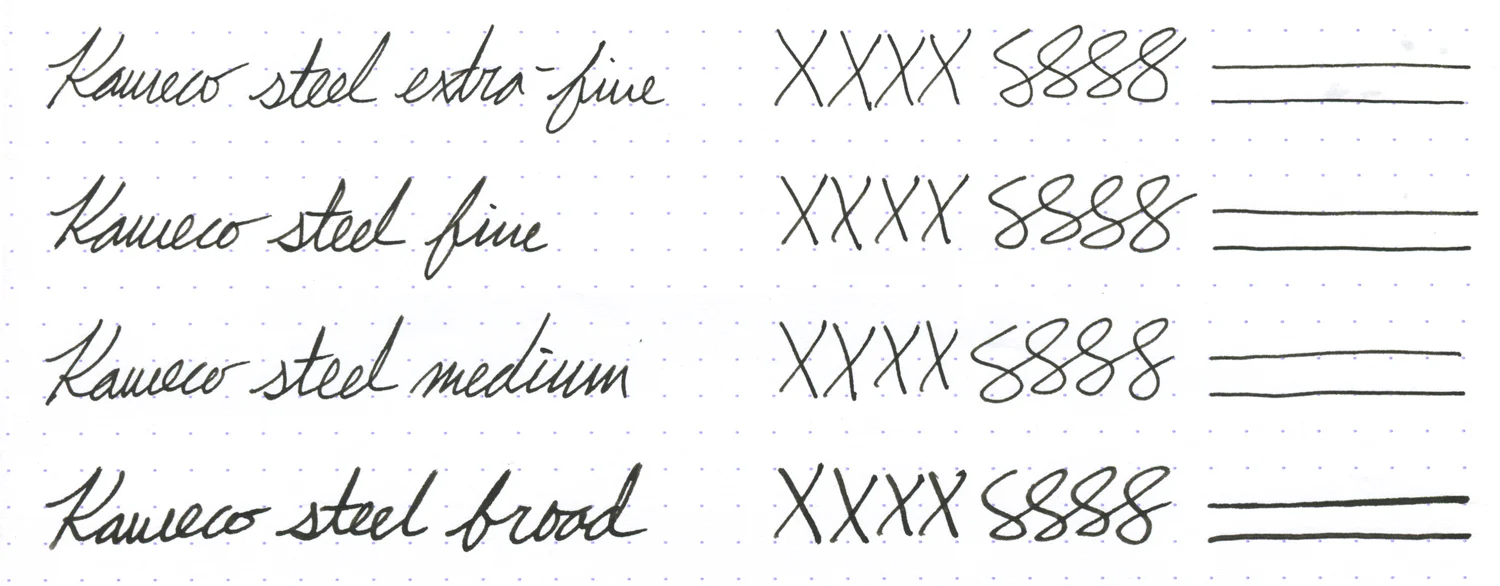 Kaweco steel extra-fine XXXX 8888
Kaweco steel fine XXXX 8888
Kaweco steel medium XXXX 8888
Kaweco steel broad XXXX 8888